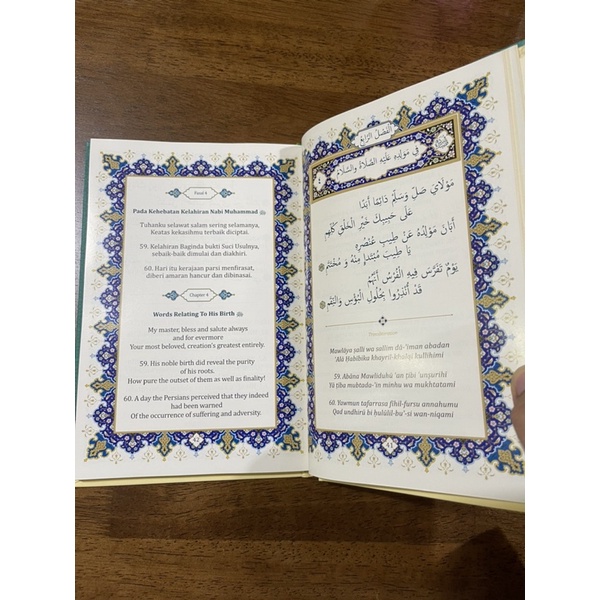 Fasal 4
Pada Kehebatan Kelahiran Nabi Muhammad ﷺ
Tuhanku selawat salam sering selamanya,
Keatas kekasihmu terbaik diciptai.
59. Kelahiran Baginda bukti Suci Usulnya,
sebaik-baik dimulai dan diakhiri.
60. Hari itu kerajaan parsi menfirasat,
diberi amaran hancur dan dibinasai.
Chapter 4
Words Relating To His Birth ﷺ
My master, bless and salute always
and for evermore
Your most beloved, creation's greatest entirely.
59. His noble birth did reveal the purity
of his roots.
How pure the outset of them as well as finality!
60. A day the Persians perceived that they indeed
had been warned
Of the occurrence of suffering and adversity.
الفَصْلُ الرَّابِعُ
فِي مَوْلِدِهِ عَلَيْهِ الصَّلَاةُ وَالسَّلَامُ
مَوْلَايَ صَلِّ وَسَلِّمْ دَائِمًا أَبَدًا
عَلَى حَبِيبِكَ خَيْرِ الْخَلْقِ كُلِّهِمِ
أَبَانَ مَوْلِدُهُ عَنْ طِيبِ عُنْصُرِهِ
يَا طِيبَ مُبْتَدَإٍ مِنْهُ وَ مُخْتَتَمِ
يَوْمٌ تَفَرَّسَ فِيهِ الْفُرْسُ أَنَّهُمُ
قَدْ أُنْذِرُوا بِحُلُولِ الْبُؤْسِ وَالنِّقَمِ
Mawlāya ṣalli wa sallim dā-'iman abadan
'Alā Ḥabībika khayril-khalqi kullihimi
59. Abāna Mawliduhū 'an ṭībi 'unṣurihī
Yā ṭība mubtada-'in minhu wa mukhtatami
60. Yawmun tafarrasa fīhil-fursu annahumu
Qad andhirū bi ḥulūlil-bu'-si wan-niqami